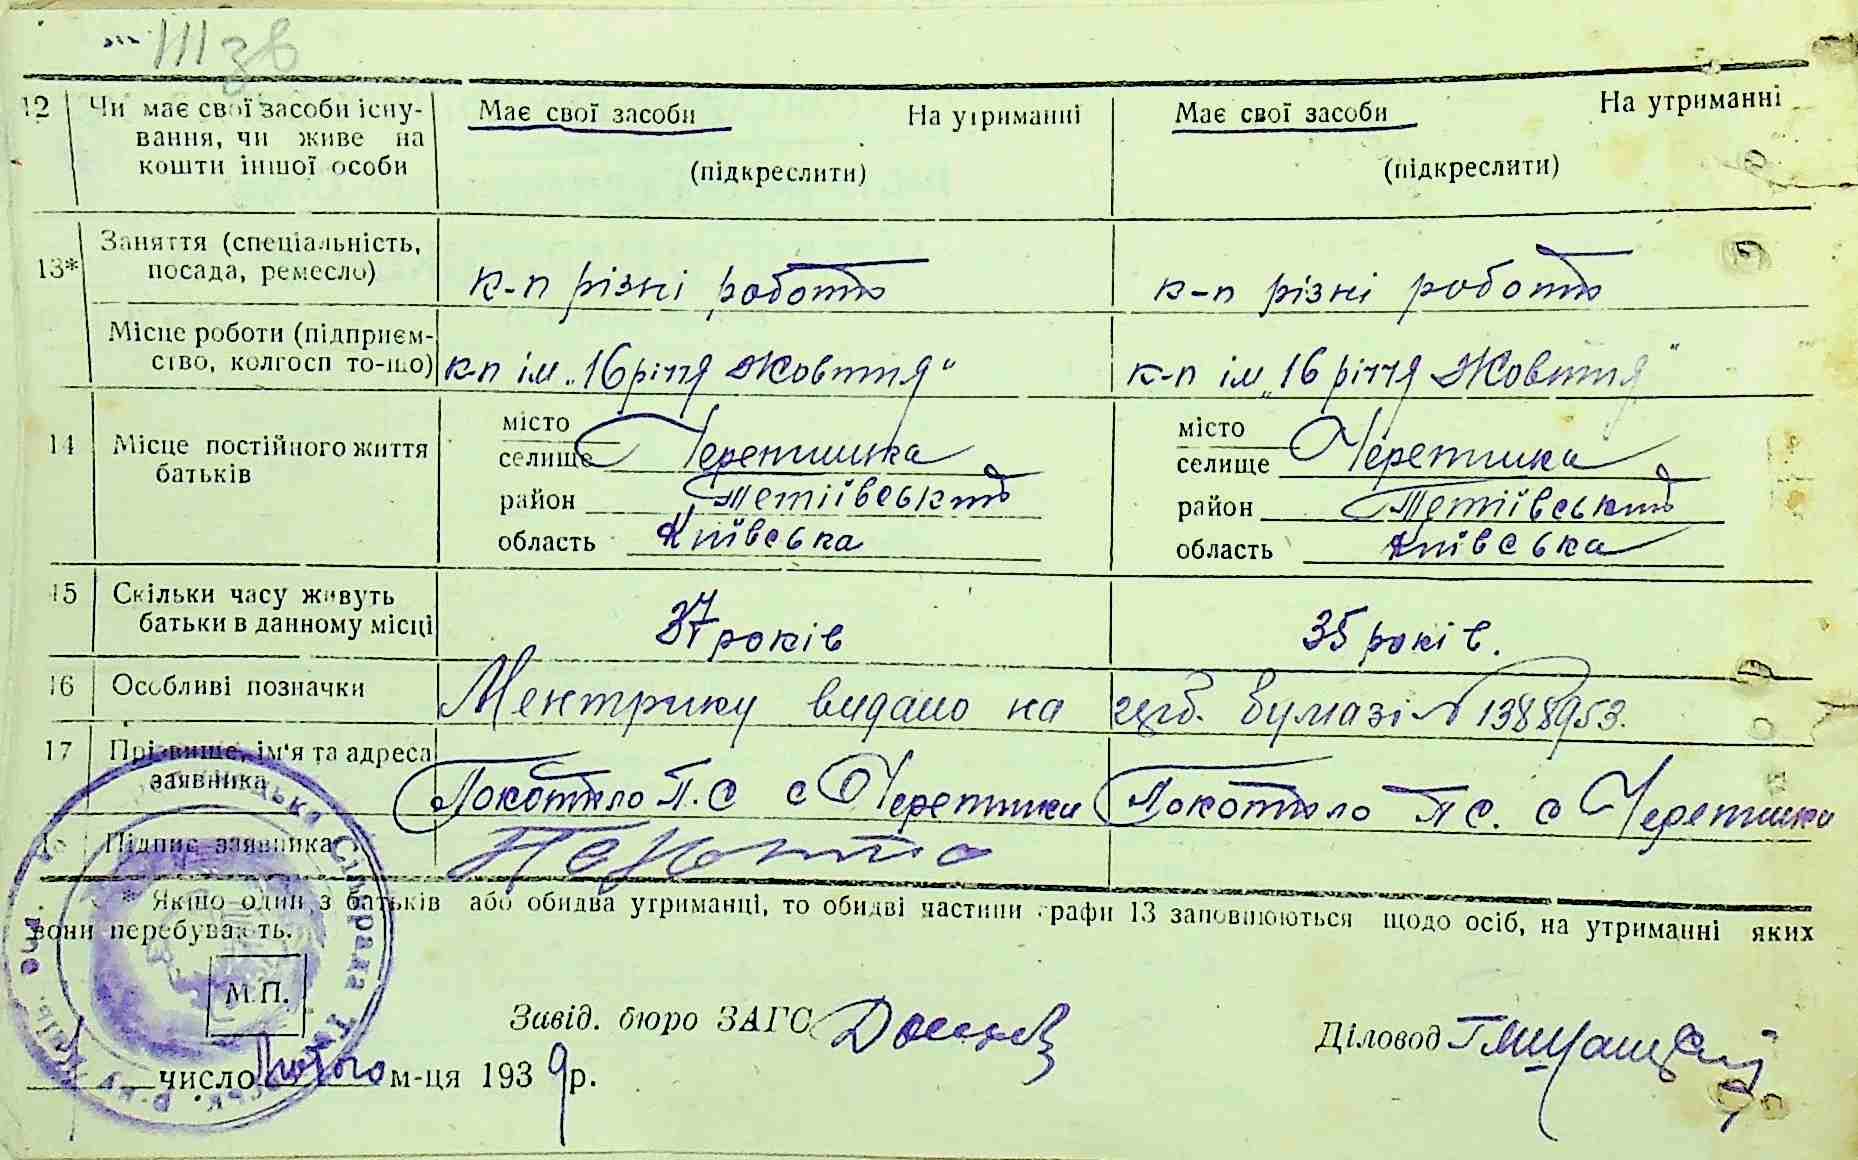 III зв
12 Чи має свої засоби існу- Має свої засоби На утриманні Має свої засоби На утриманні
вання, чи живе на
кошти іншої особи (підкреслити) (підкреслити)
13* Заняття (спеціальність,
посада, ремесло) к-п різні роботи к-п різні роботи
Місце роботи (підприєм-
ство, колгосп то-що) к-п ім „16 річчя Жовтня" к-п ім „16 річчя Жовтня"
14 Місце постійного життя
батьків
місто місто
селище Черепинка селище Черепинка
район Тетіївський район Тетіївський
область Київська область Київська
15 Скільки часу живуть
батьки в данному місці 37 років 35 років.
16 Особливі позначки Ментрику видано на бумазі № 1388953.
17 Прізвище, ім'я та адреса
заявника Покотило П.С с Черепинки Покотило П С. с Черепинки
18 Підпис заявника
* Якщо один з батьків або обидва утриманці, то обидві частини графи 13 заповнюються щодо осіб, на утриманні яких
вони перебувають.
М.П.
Завід. бюро ЗАГС Діловод
число Лютого м-ця 1939 р.